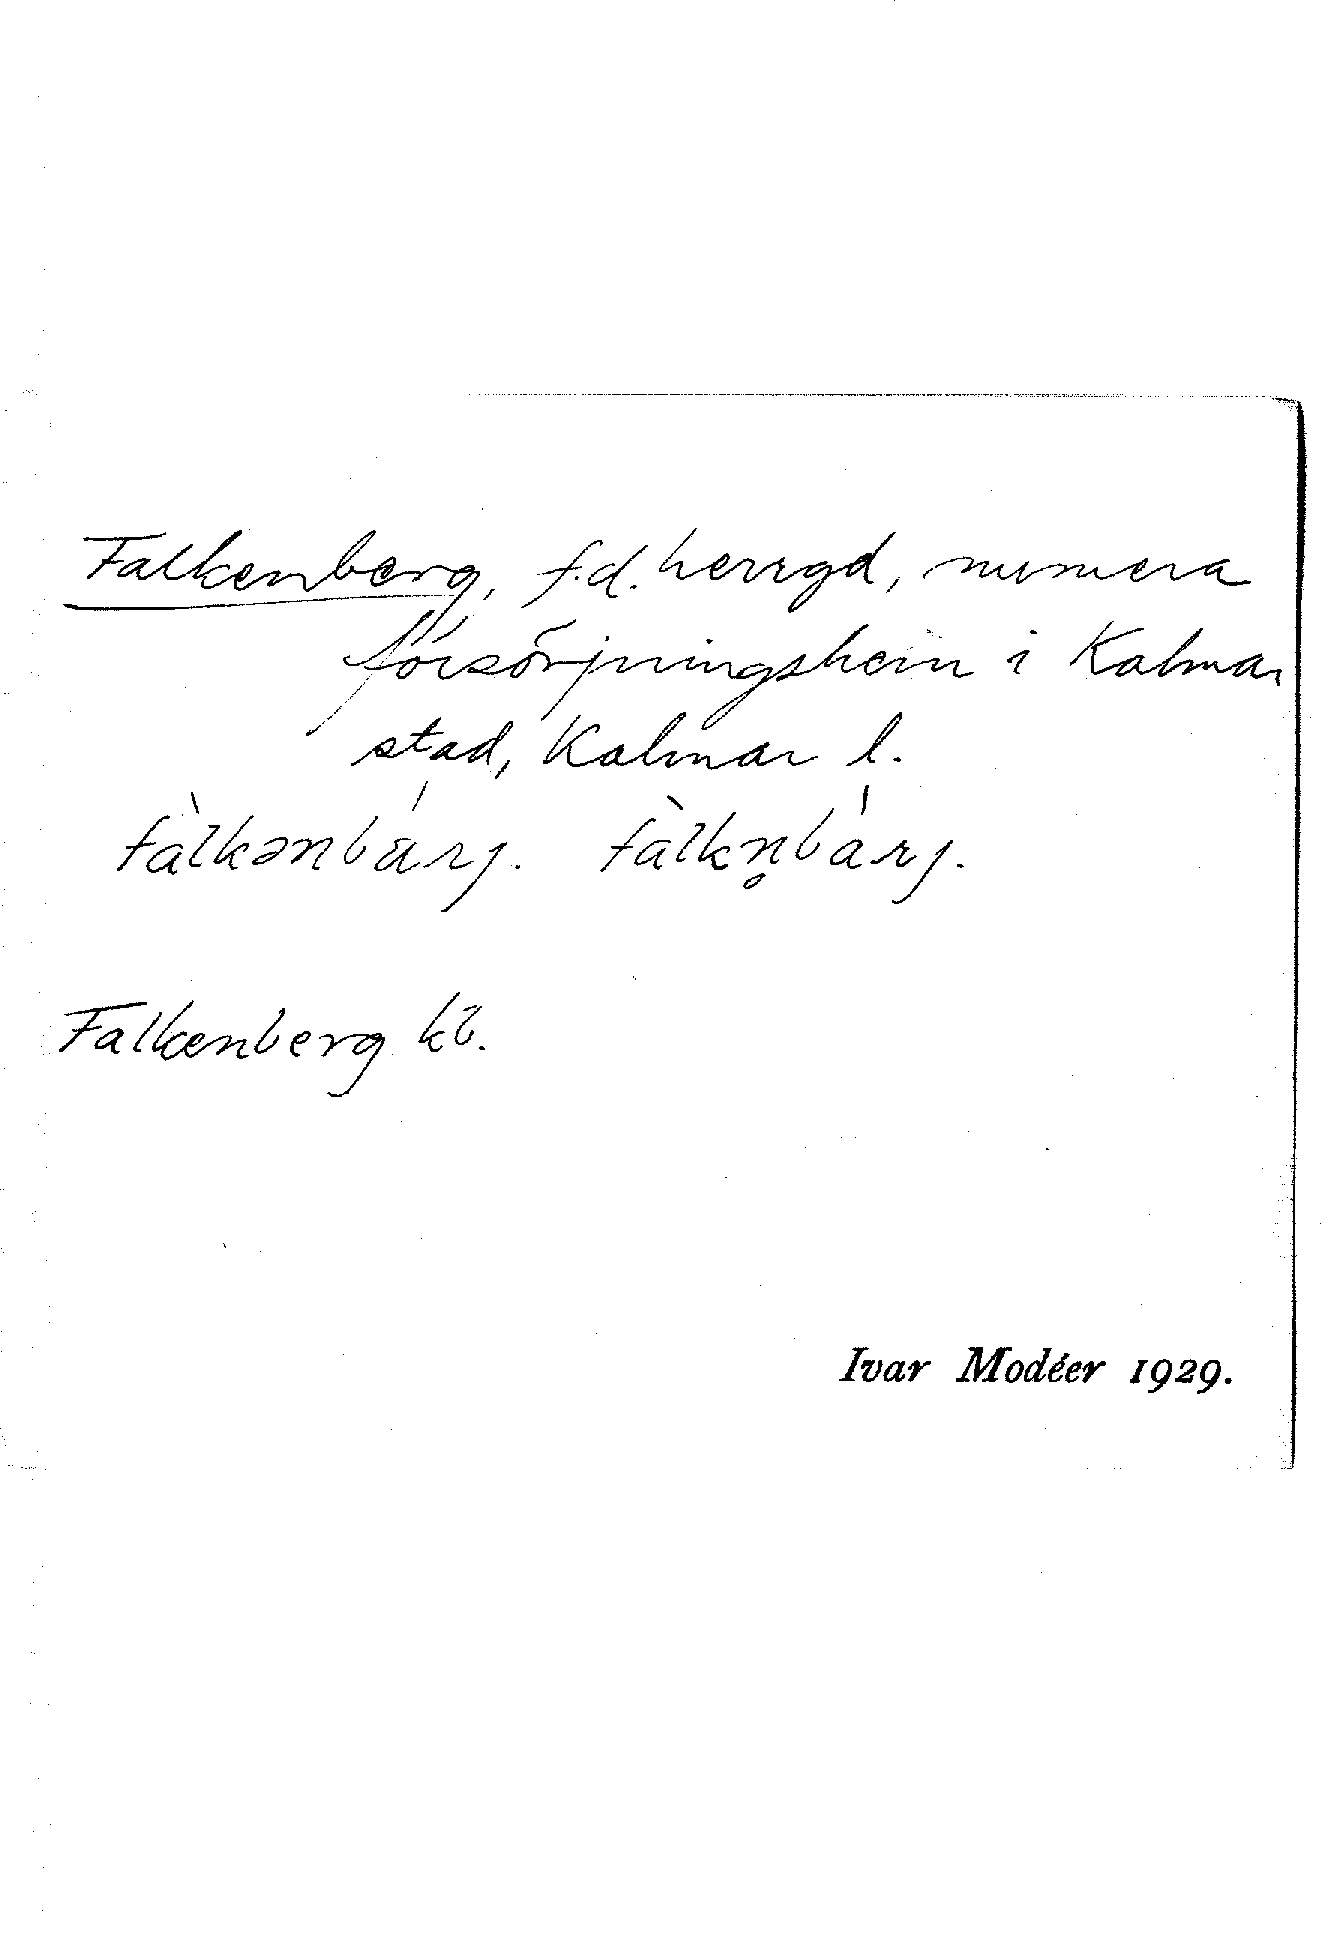 Falkenberg, f.d. herrgd, numera
försörjningshem i Kalmar
stad, Kalmar l.
fàlkənbárj. fàlkn̥bárj.
Falkenberg kb.
Ivar Modéer 1929.